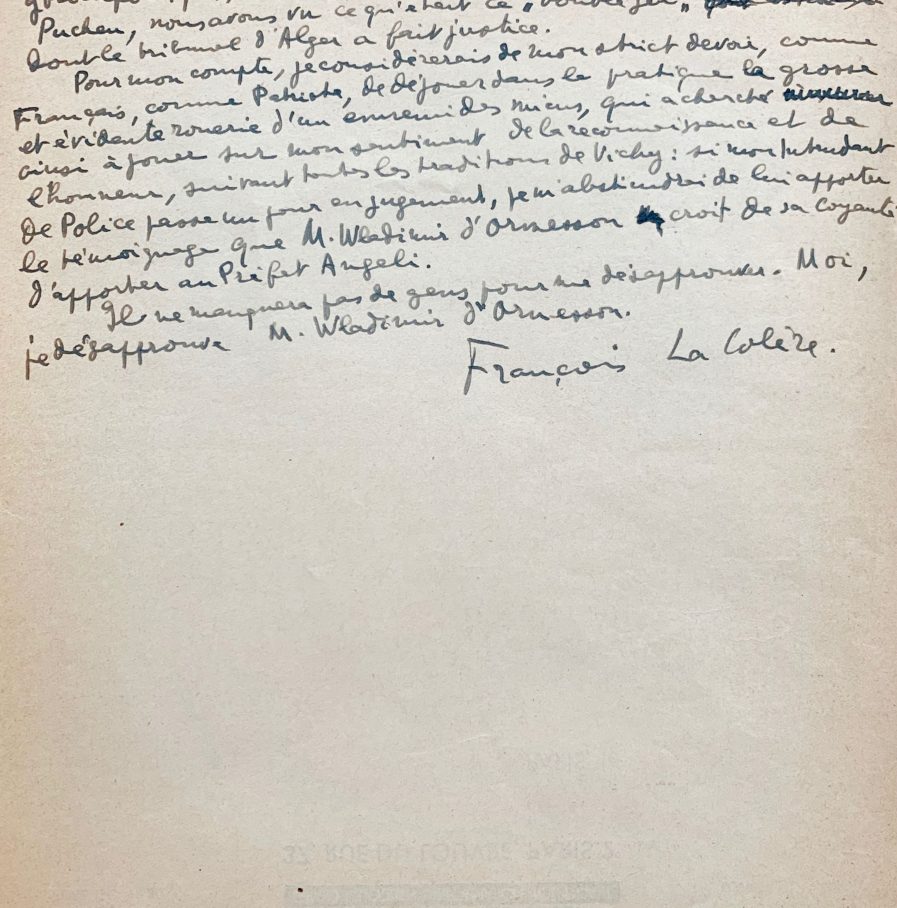 Pucheu, nous avons vu ce qu'était ce „double jeu„
dont le tribunal d'Alger a fait justice.
Pour mon compte, je considérerais de mon strict devoir, comme
Français, comme Patriote, de déjouer dans la pratique la grosse
et évidente rouerie d'un ennemi des miens, qui a cherché
ainsi à jouer sur mon sentiment de la reconnaissance et de
l'honneur, suivant toutes les traditions de Vichy : si mon Intendant
de Police passe un jour en jugement, je m'abstiendrai de lui apporter
le témoignage que M. Wladimir d'Ormesson croit de sa loyauté
d'apporter au Préfet Angeli.
Il ne manquera pas de gens pour me désapprouver. Moi,
je désapprouve M. Wladimir d'Ormesson.
François La Colère.
PARIS
37, RUE DU LOUVRE PARIS 2